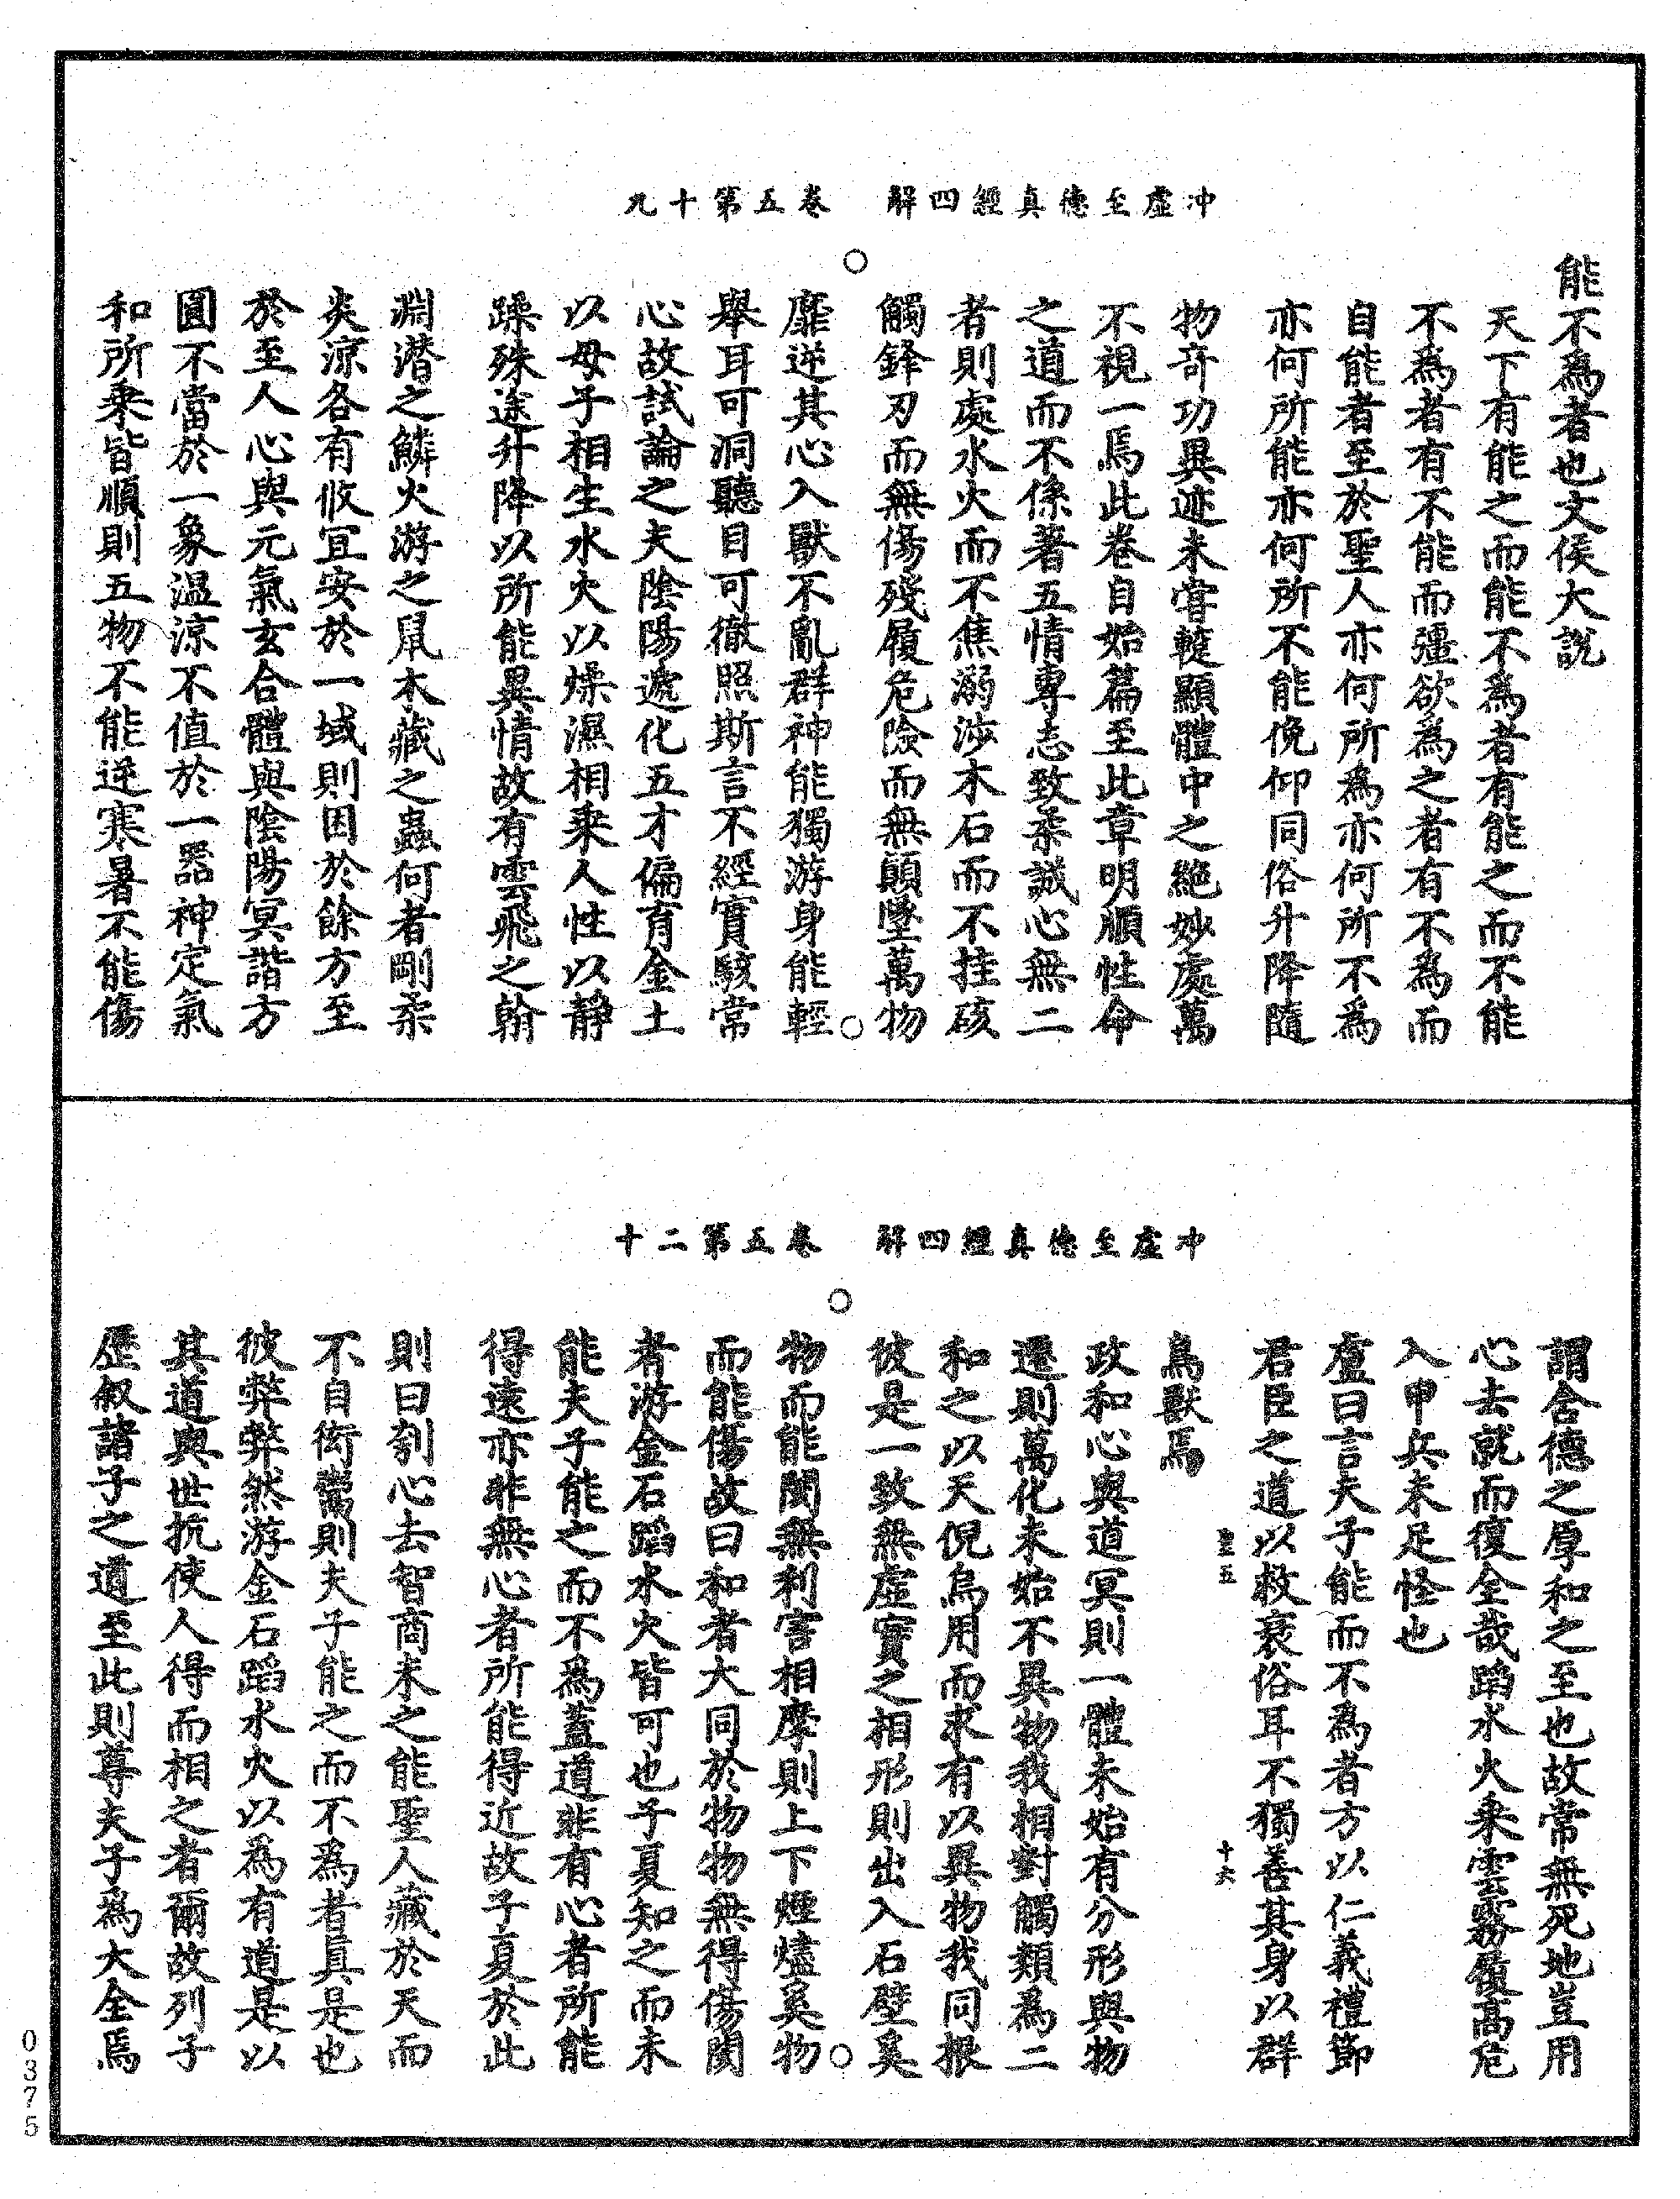 冲虛至德真經四解　卷五第十九
能不為者也文侯大說
天下有能之而能不為者有能之而不能
不為者有不能而彊欲為之者有不為而
自能者至於聖人亦何所為亦何所不為
亦何所能亦何所不能俛仰同俗升降隨
物奇功異迹未嘗蹔顯體中之絕妙處萬
不視一焉此卷自始篇至此章明順性命
之道而不係著五情專志致柔誠心無二
者則處水火而不焦溺涉木石而不挂硋
觸鋒刃而無傷殘履危險而無顛墜萬物
靡逆其心入獸不亂群神能獨游身能輕
舉耳可洞聽目可徹照斯言不經實駭常
心故試論之夫陰陽遞化五才偏育金土
以母子相生水火以燥濕相乘人性以靜
躁殊途升降以所能異情故有雲飛之翰
淵潛之鱗火游之鼠木藏之蟲何者剛柔
炎涼各有攸宜安於一域則困於餘方至
於至人心與元氣玄合體與陰陽冥諧方
圓不當於一象溫涼不值於一器神定氣
和所乘皆順則五物不能逆寒暑不能傷
冲虛至德真經四解　卷五第二十
謂含德之厚和之至也故常無死地豈用
心去就而復全哉蹈水火乘雲霧履高危
入甲兵未足怪也
盧曰言夫子能而不為者方以仁義禮節
君臣之道以救衰俗耳不獨善其身以群
聖五　十六
鳥獸焉
政和心與道冥則一體未始有分形與物
遷則萬化未始不異物我相對觸類為二
和之以天倪烏用而求有以異物我同根
彼是一致無虛實之相形則出入石壁奚
物而能閡無利害相摩則上下煙燼奚物
而能傷故曰和者大同於物物無得傷閡
者游金石蹈水火皆可也子夏知之而未
能夫子能之而不為蓋道非有心者所能
得遠亦非無心者所能得近故子夏於此
則曰刳心去智商未之能聖人藏於天而
不自衒鬻則夫子能之而不為者真是也
彼弊弊然游金石蹈水火以為有道是以
其道與世抗使人得而相之者爾故列子
歷叙諸子之道至此則尊夫子為大全焉
0375